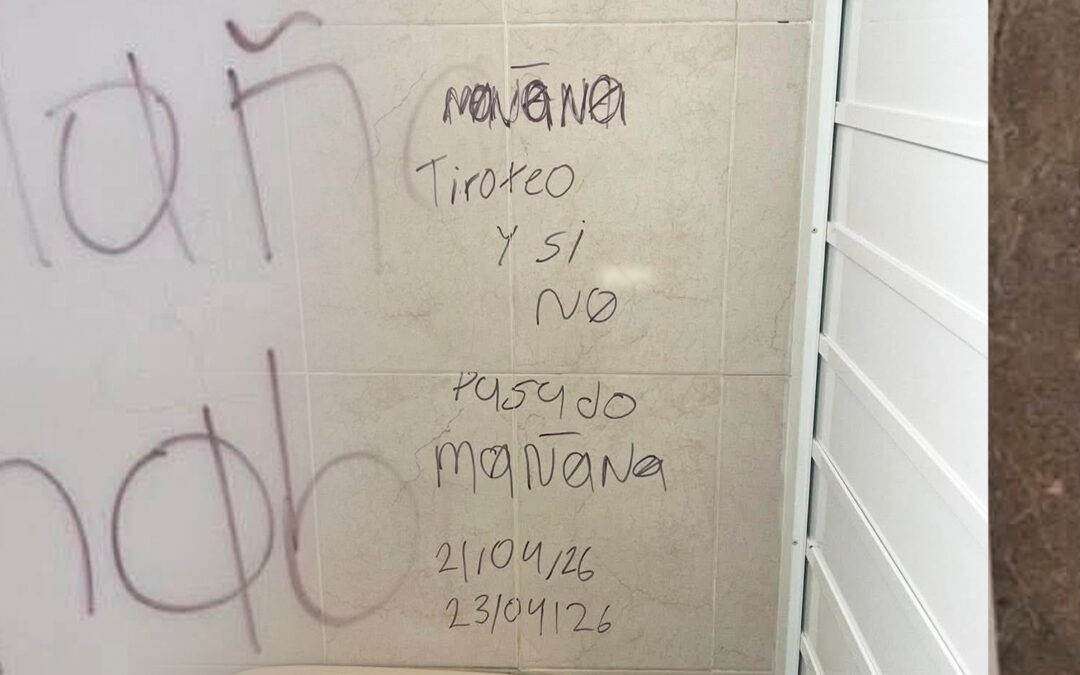 mañana
Tiroteo
y si
no
Pasado
mañana
21/04/26
23/04/26